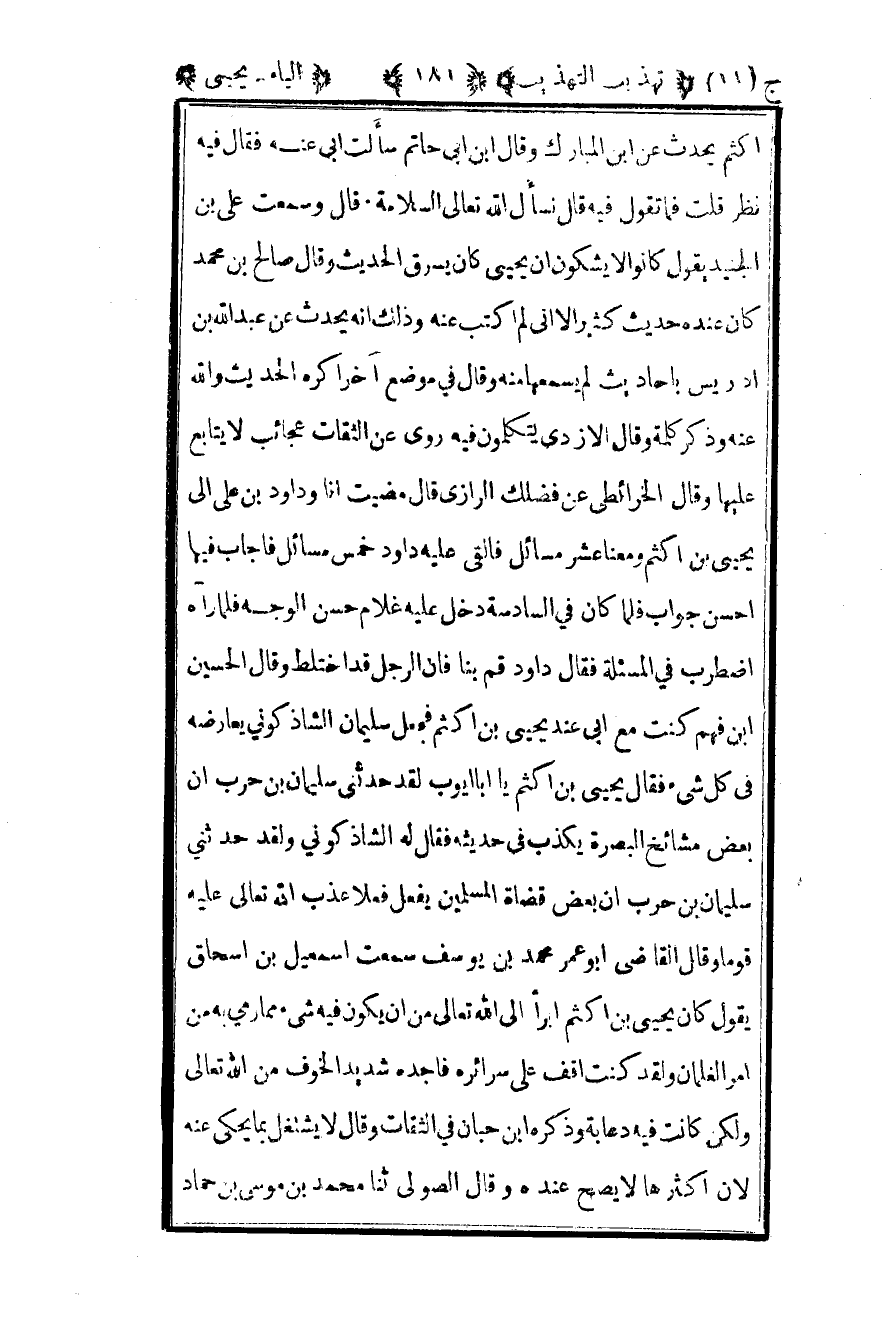 ج (١١) تهذيب التهذيب ١٨١ الياء - يحيى
اكثم يحدث عن ابن المبارك وقال ابن ابى حاتم سألت ابى عنه فقال فيه
نظر قلت فما تقول فيه قال نسأل الله تعالى السلامة . قال وسمعت على بن
الجنيد يقول كانوا لا يشكون ان يحيى كان يسرق الحديث وقال صالح بن محمد
كان عنده حديث كثير الا انى لم اكتب عنه وذلك انه يحدث عن عبد الله بن
ادريس باحاديث لم يسمعها منه وقال في موضع آخر اكره الحديث والله
عنه وذكر كلمة وقال الازدى يتكلمون فيه روى عن الثقات عجائب لا يتابع
عليها وقال الخرائطى عن فضلك الرازى قال مضيت انا وداود بن على الى
يحيى بن اكثم ومعنا عشر مسائل فالقى عليه داود خمس مسائل فاجاب فيها
احسن جواب فلما كان في السادسة دخل عليه غلام حسن الوجه فلما رآه
اضطرب في المسئلة فقال داود قم بنا فان الرجل قد اختلط وقال الحسين
ابن فهم كنت مع ابى عند يحيى بن اكثم فجعل سليمان الشاذكوني يعارضه
فى كل شىء فقال يحيى بن اكثم يا ابا ايوب لقد حدثنى سليمان بن حرب ان
بعض مشائخ البصرة يكذب فى حديثه فقال له الشاذكوني ولقد حدثني
سليمان بن حرب ان بعض قضاة المسلمين يفعل فعلا عذب الله تعالى عليه
قوما وقال القاضى ابو عمر محمد بن يوسف سمعت اسمعيل بن اسحاق
يقول كان يحيى بن اكثم ابرأ الى الله تعالى من ان يكون فيه شىء مما رمي به من
امر الغلمان ولقد كنت اقف على سرائره فاجده شديد الخوف من الله تعالى
ولكن كانت فيه دعابة وذكره ابن حبان في الثقات وقال لا يشتغل بما يحكى عنه
لان اكثرها لا يصح عنده وقال الصولى ثنا محمد بن موسى بن حماد